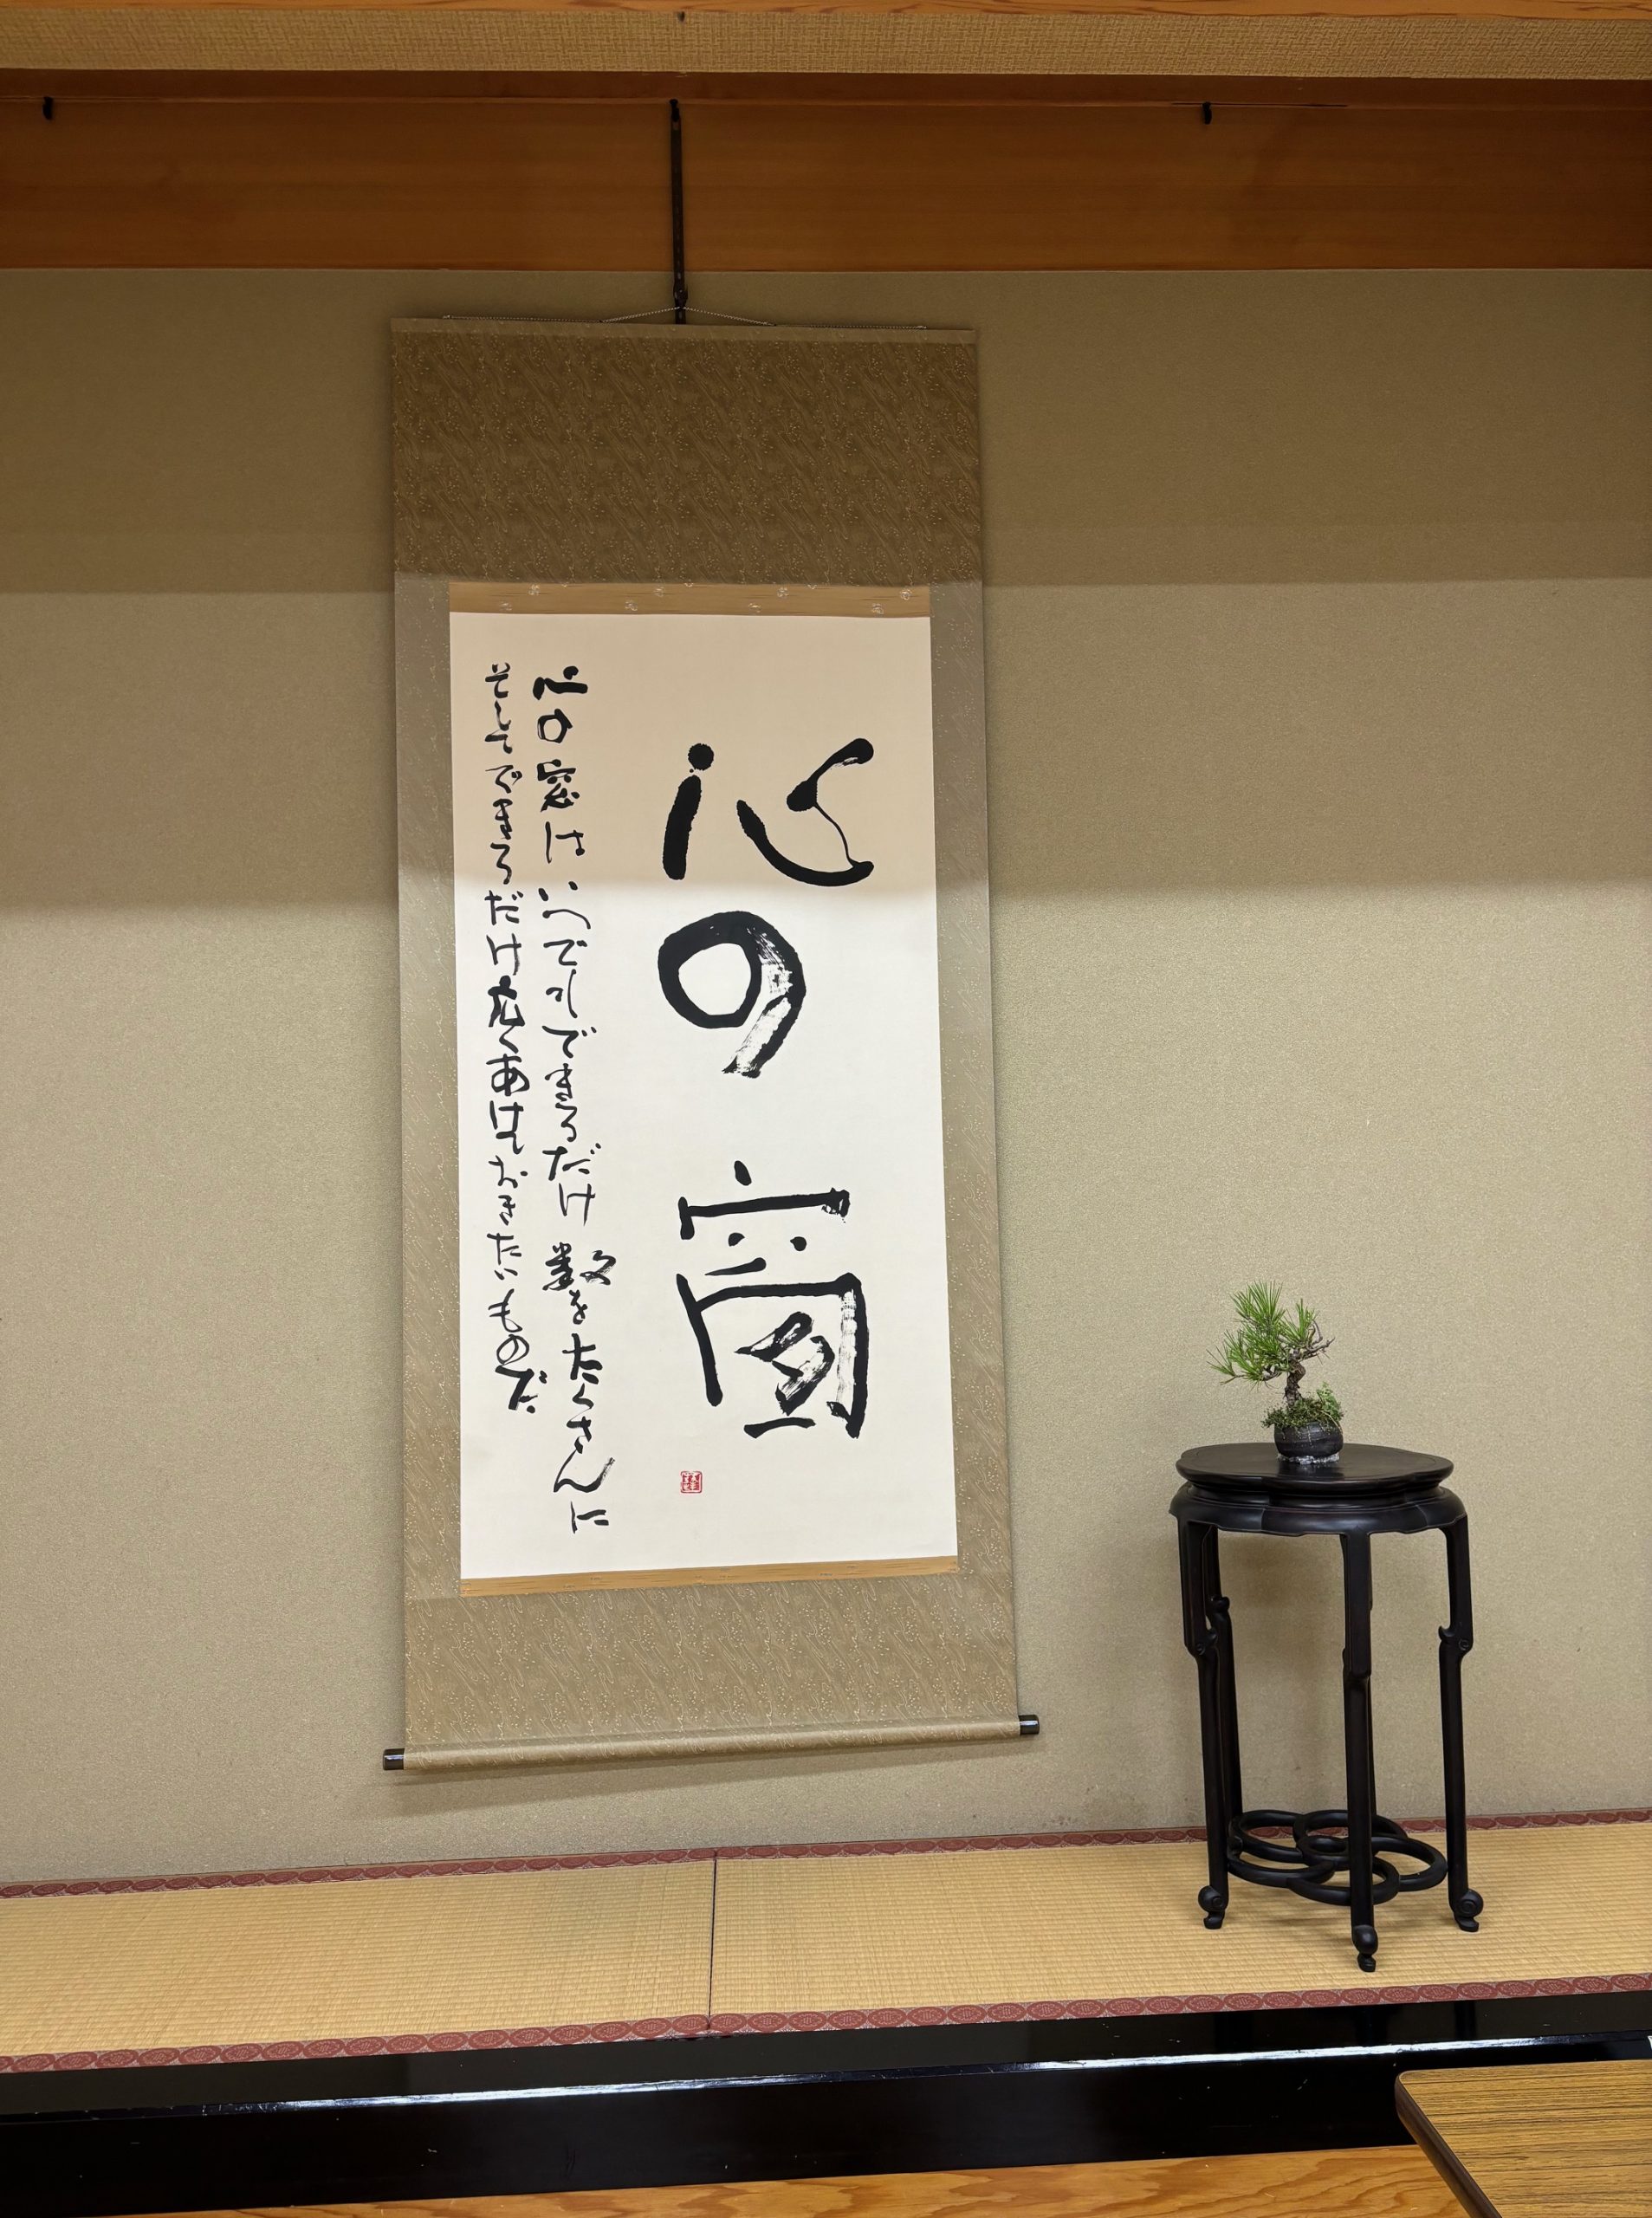 心の窗
心の窓はいつでもできるだけ数をたくさんに
そしてできるだけ広くあけておきたいものだ